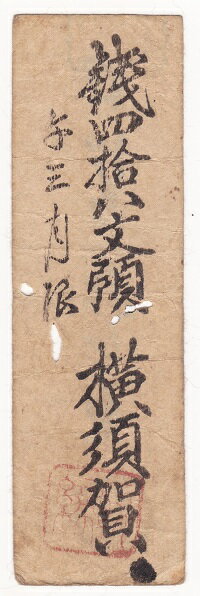 錢四拾八文預 横須賀
午三月限